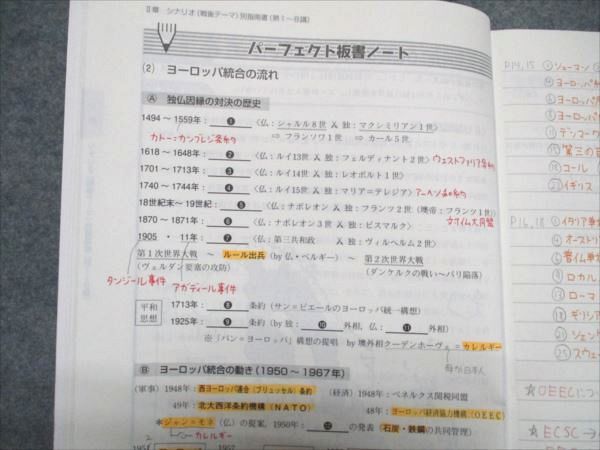 Ⅱ章 シナリオ(戦後テーマ)別指南書(第1〜8講)
パーフェクト板書ノート
(2) ヨーロッパ統合の流れ
Ⓐ 独仏因縁の対決の歴史
1494〜1559年:❶〈仏:シャルル8世 X 独:マクシミリアン1世〉
⇒ フランソワ1世 ⇒ カール5世
カトー=カンブレジ条約
1618〜1648年:❷〈仏:ルイ13世 X 独:フェルディナント2世〉ウェストファリア条約
1701〜1713年:❸〈仏:ルイ14世 X 独:レオポルト1世〉
1740〜1744年:❹〈仏:ルイ15世 X 独:マリア=テレジア〉アーヘン和約
18世紀末〜19世紀:❺〈仏:ナポレオン X 独:フランツ2世(墺帝:フランツ1世)〉
1870〜1871年:❻〈仏:ナポレオン3世 X 独:ビスマルク〉
1905・11年:❼〈仏:第三共和政 X 独:ヴィルヘルム2世〉
第1次世界大戦 〜 ルール出兵(by仏・ベルギー)〜 第2次世界大戦
(ヴェルダン要塞の攻防) (ダンケルクの戦い〜パリ陥落)
タンジール事件 アガディール事件
平和思想
1713年:❽条約(サン=ピエールのヨーロッパ統一構想)
1925年:❾条約(by独:❿外相,仏:⓫外相)
※「パン=ヨーロッパ」構想の提唱 by墺外相クーデンホーヴ=カレルギー
母が日本人
Ⓑ ヨーロッパ統合の動き(1950〜1967年)
(軍事) 1948年:西ヨーロッパ連合(ブリュッセル)条約 (経済) 1948年:ベネルクス関税同盟
49年:北大西洋条約機構(NATO) 48年:ヨーロッパ経済協力機構(OEEC)
*ジャン=モネ(仏)の提案,1950年:⓬の発表(石炭・鉄鋼の共同管理)
カレルギー
P14,15 ①シューマン
④ヨーロッパ
⑥ヨーロッパ
⑪デンマーク
⑮第三の
⑱コール
㉑イギリス
P16,18 ①イタリア
④オースト
⑧ロカル
⑪ローマ
⑭ギリシア
☆OEECにつ
☆ECSC →